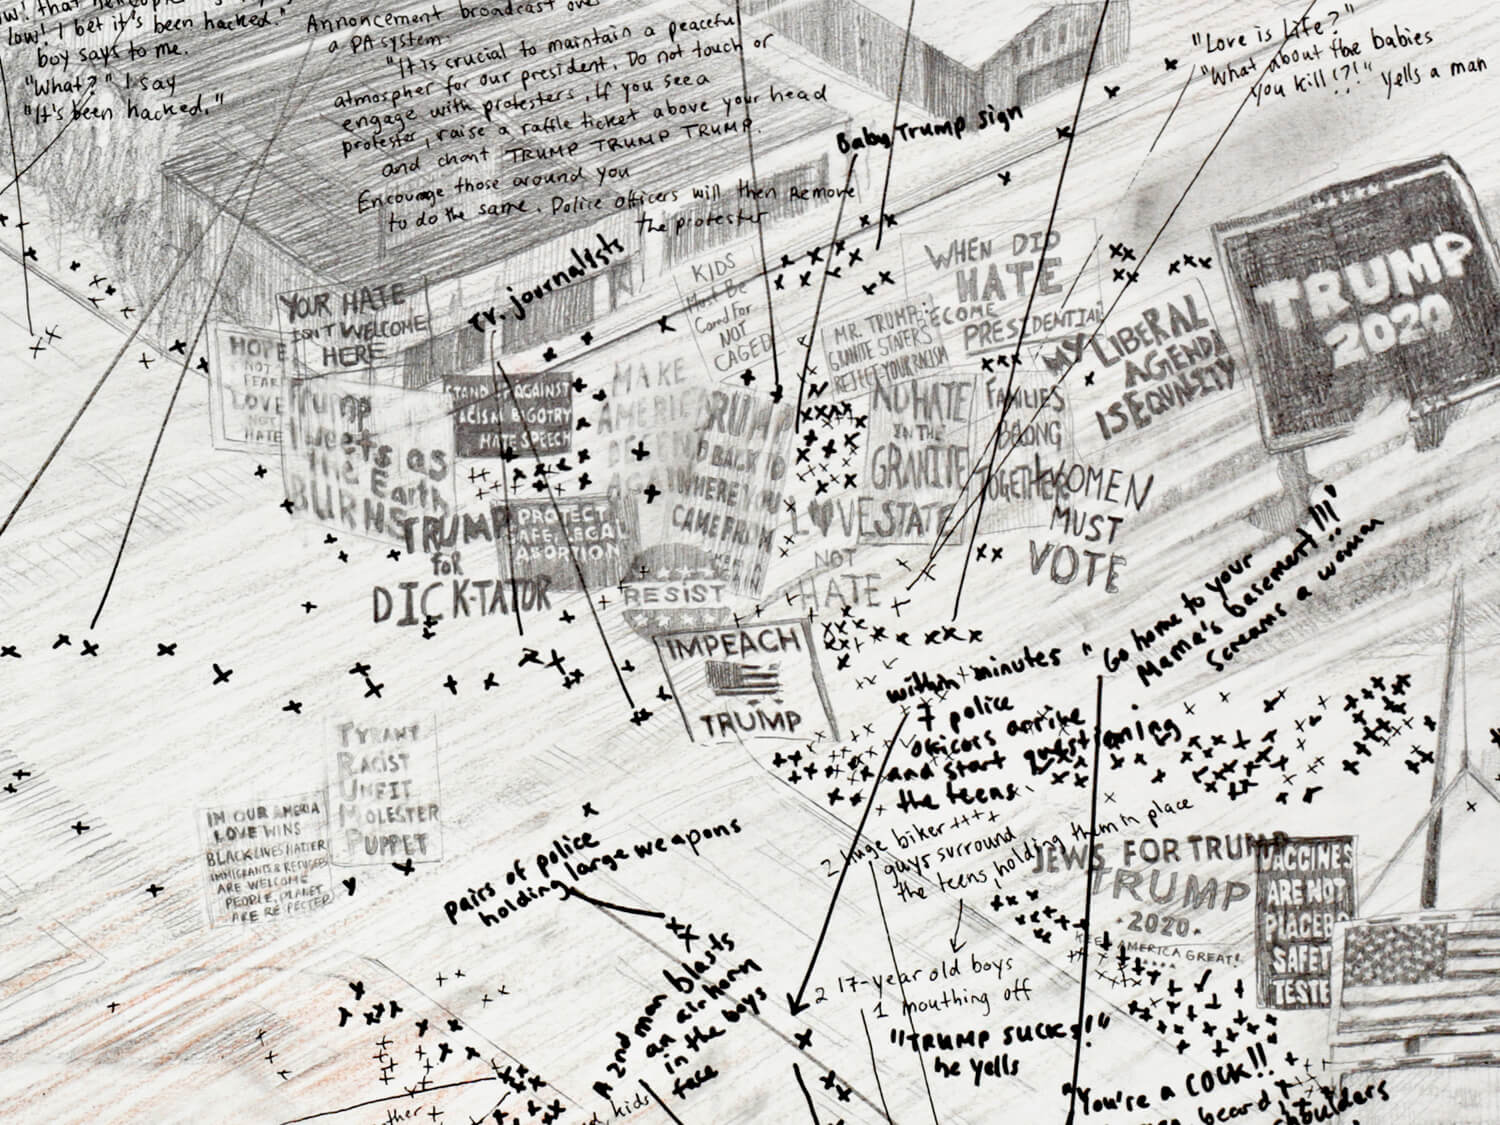 low! I bet it's been hacked."
boy says to me.
"What?" I say
"It's been hacked."
Annoncement broadcast over
a PA system:
"It is crucial to maintain a peaceful
atmospher for our president. Do not touch or
engage with protesters. If you see a
protester, raise a raffle ticket above your head
and chant TRUMP TRUMP TRUMP.
Encourage those around you
to do the same. Police officers will then remove
the protester
"Love is life?"
"What about the babies
you kill!?!" yells a man
Baby Trump sign
T.V. journalists
YOUR HATE
ISN'T WELCOME
HERE
HOPE
NOT
FEAR
LOVE
NOT
HATE
Trump
Tweets as
the Earth
BURNS
STAND UP AGAINST
RACISM BIGOTRY
HATE SPEECH
MAKE
AMERICA
AGAIN
TRUMP
GO BACK TO
WHERE YOU
CAME FROM
KIDS
Must Be
Cared For
NOT
CAGED
MR. TRUMP:
GRANITE STATERS
REJECT YOUR RACISM
WHEN DID
HATE
BECOME
PRESIDENTIAL
MY LIBERAL
AGENDA
IS EQUALITY
TRUMP
2020
NO HATE
IN THE
GRANITE
STATE
FAMILIES
BELONG
TOGETHER
WOMEN
MUST
VOTE
LOVE
NOT
HATE
TRUMP
for
DICK-TATOR
PROTECT
SAFE, LEGAL
ABORTION
RESIST
IMPEACH
TRUMP
TYRANT
RACIST
UNFIT
MOLESTER
PUPPET
IN OUR AMERIA
LOVE WINS
BLACK LIVES MATTER
IMMIGRANTS & REFUGEES
ARE WELCOME
PEOPLE, PLANET
ARE RESPECTED
"Go home to your
Mama's basement!!!"
Screams a woman
within minutes
7 police
officers arrive
and start questioning
the teens.
2 huge biker
guys surround
the teens, holding them in place
Pairs of police
holding large weapons
A 2nd man blasts
an air horn
in the boys
face
2 17-year old boys
1 mouthing off
"TRUMP SUCKS!"
he yells
JEWS FOR TRUMP
TRUMP
2020.
KEEP AMERICA GREAT!
VACCINES
ARE NOT
PLACEBO
SAFETY
TESTED
"You're a COCK!!"
beard
shoulders
kids